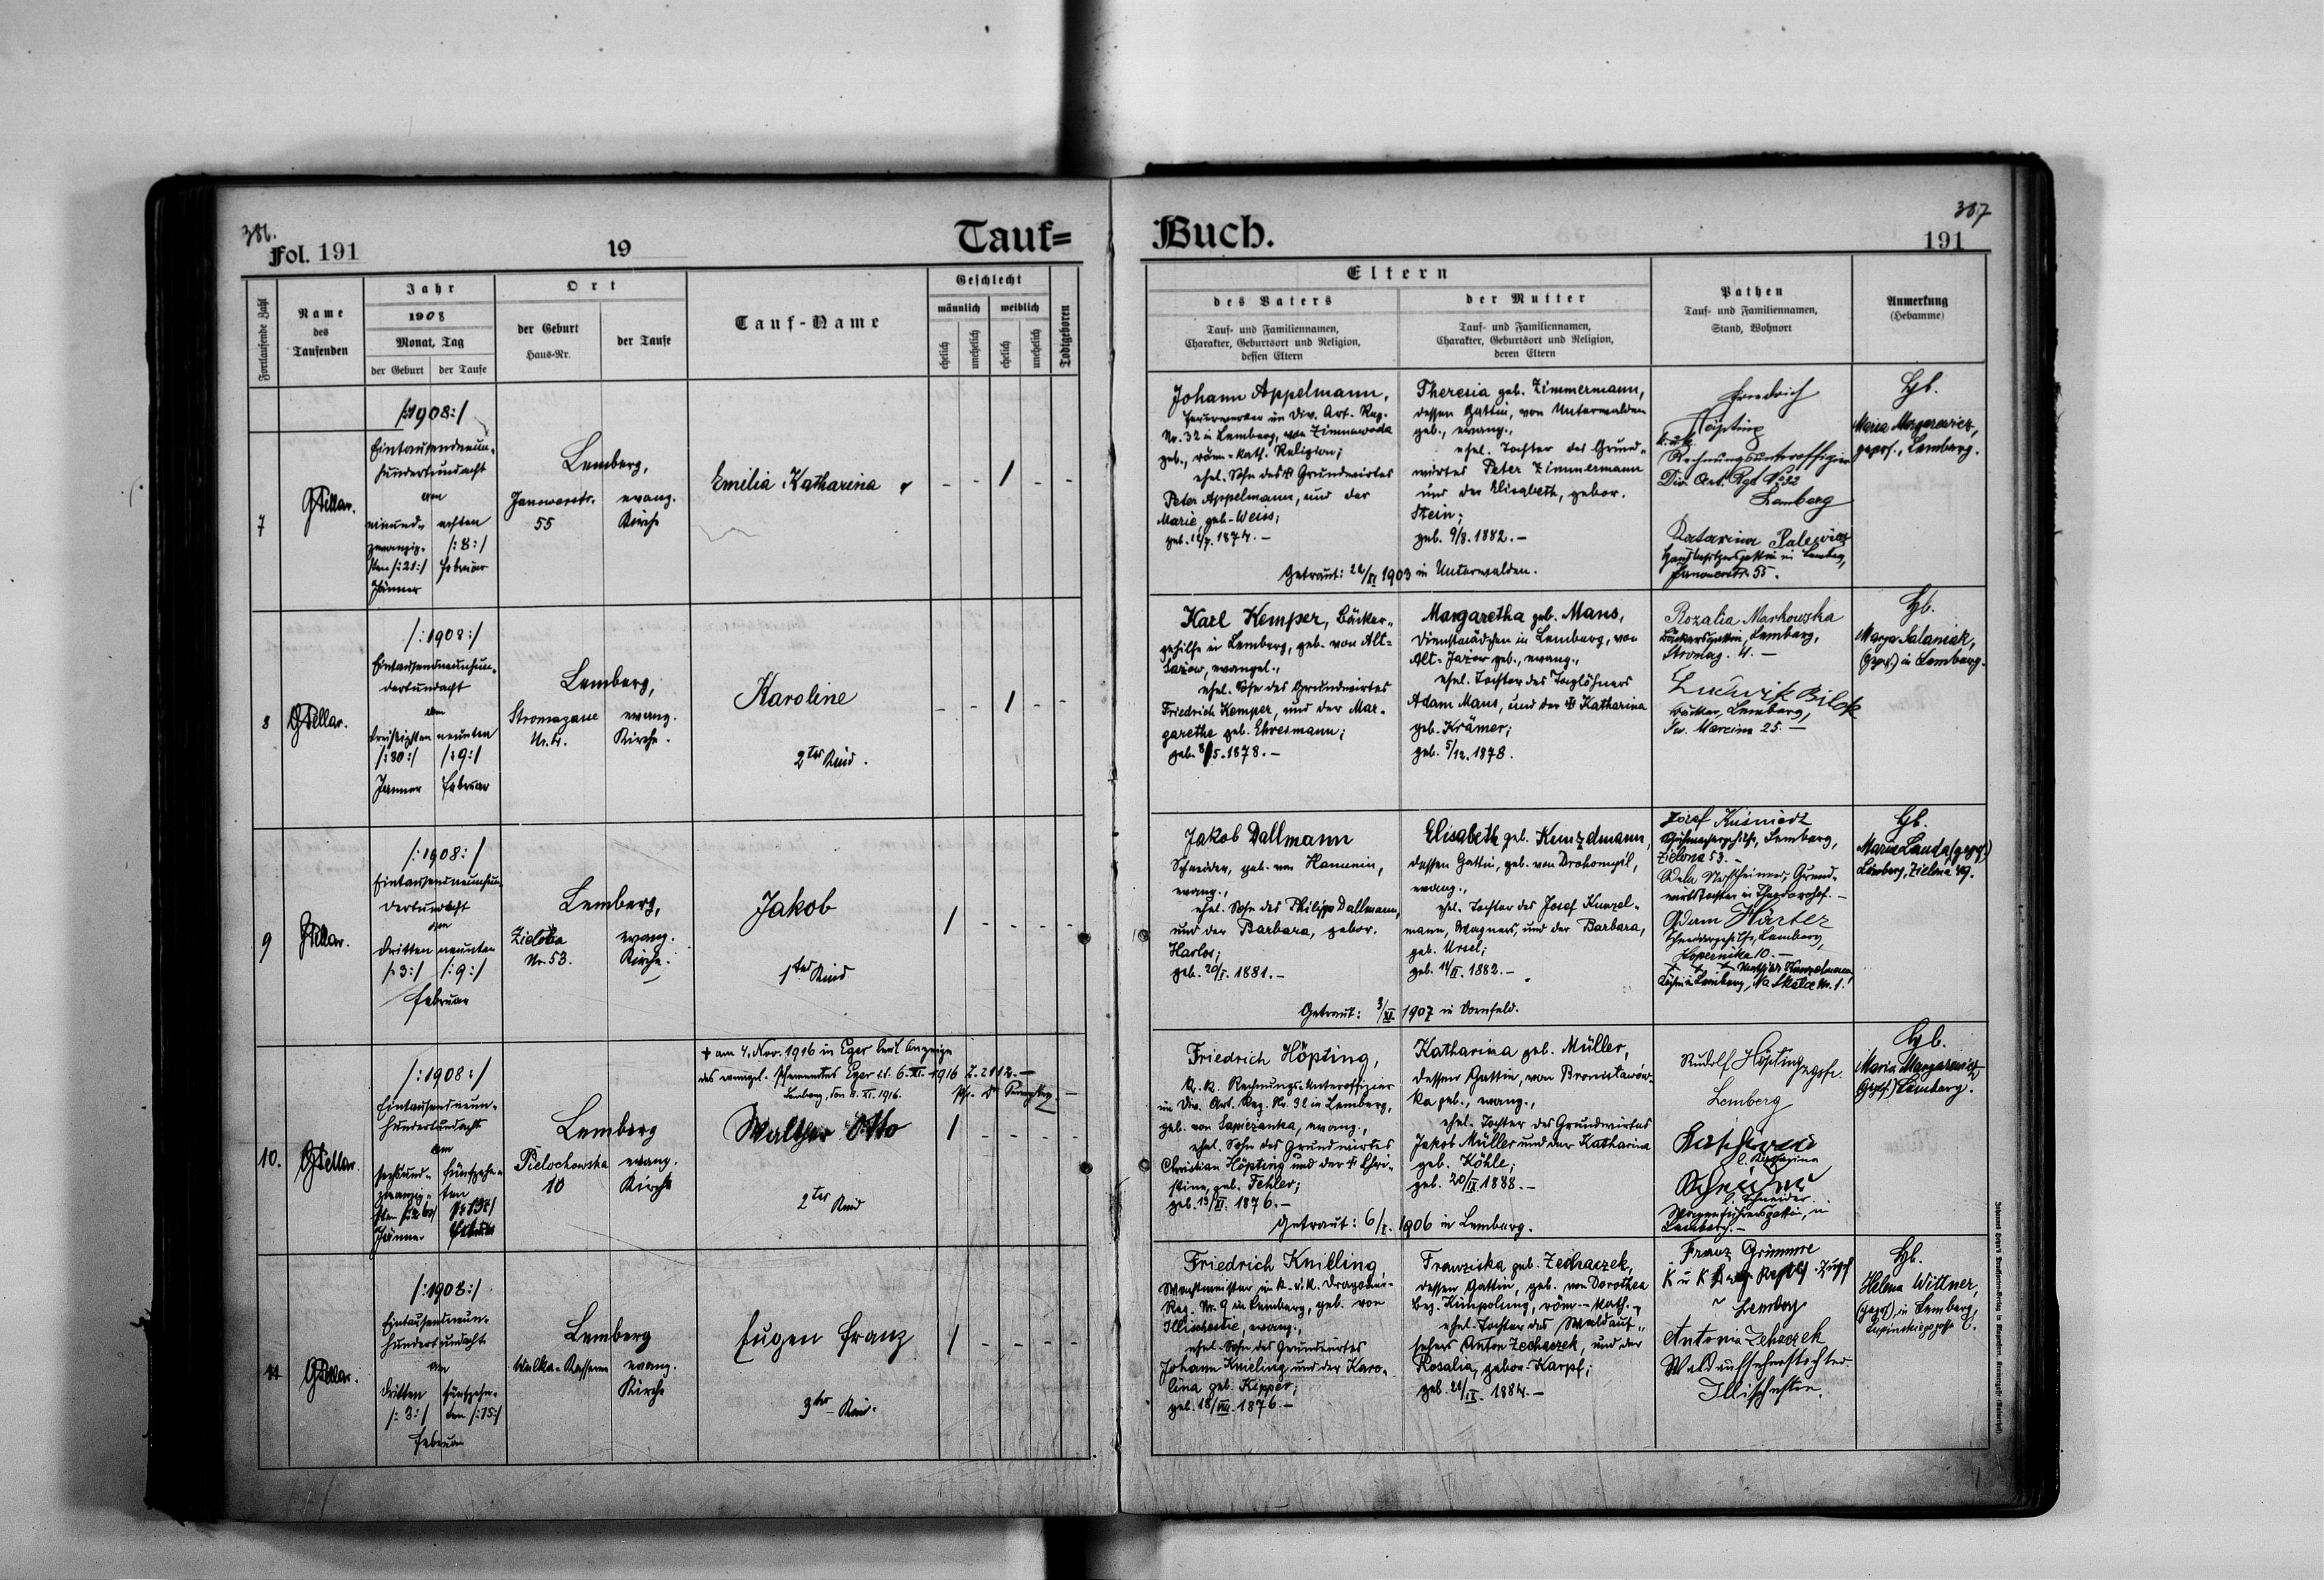 386.
Fol. 191
19
Tauf=
Fortlaufende Zahl
Name
des
Taufenden
Jahr
1908
Monat, Tag
der Geburt
der Taufe
Ort
der Geburt
Haus-Nr.
der Taufe
Tauf-Name
Geschlecht
männlich
weiblich
ehelich
unehelich
ehelich
unehelich
Todtgeboren
7
/:1908:/
Eintausendneun-
hundertundacht
am
einund-
zwanzig-
sten /:21:/
Jänner
achten
/:8:/
Februar
Lemberg,
Janowerstr.
55
evang.
Kirche
Emilia Katharina
- - 1 - -
8
/:1908:/
Eintausendneunhun-
dertundacht
am
dreißigsten
/:30:/
Jänner
neunten
/:9:/
Februar
Lemberg,
evang.
Kirche.
Karoline
2tes Kind.
- - 1 - -
9
/:1908:/
Eintausendneunhun-
dertundacht
am
dritten
/:3:/
neunten
/:9:/
Februar
Lemberg,
Zielona
Nr. 53.
evang.
Kirche.
Jakob
1tes Kind
1 - - - -
10.
/:1908:/
Eintausendneun-
hundertundacht
am
sechsund-
zwanzig-
sten /:26:/
Jänner
fünfzehn-
ten
/:15:/
Februar
Lemberg
10
evang.
Kirche
† am 4. Nov. 1916 in Eger laut Anzeige
des evangel. Pfarramtes Eger d. 6. XI. 1916 Z. 2112.—
Lemberg, den 8. XI. 1916.
Walther Otto
2tes Kind
1 - - - -
11
/:1908:/
Eintausendneun-
hundertundacht
am
dritten
/:3:/
fünfzehn-
ten /:15:/
Februar
Lemberg
Wulka-Kaserne
evang.
Kirche
Eugen Franz
3tes Kind.
1 - - - -
Buch.
387
191
Eltern
des Vaters
Tauf- und Familiennamen,
Charakter, Geburtsort und Religion,
dessen Eltern
der Mutter
Tauf- und Familiennamen,
Charakter, Geburtsort und Religion,
deren Eltern
Pathen
Tauf- und Familiennamen,
Stand, Wohnort
Anmerkung
(Hebamme)
Johann Appelmann,
Feuerwerker im Div. Art. Reg.
Nr. 32 in Lemberg, von Zimnawoda
geb., röm-kath. Religion;
ehel. Sohn des † Grundwirtes
Peter Appelmann, und der
Marie, geb. Weiss;
geb. 12/7. 1874.—
Theresia geb. Zimmermann,
dessen Gattin, von Unterwalden
geb., evang.,
ehel. Tochter des Grund-
wirtes Peter Zimmermann
und der Elisabeth, gebor.
Stein;
geb. 9/8. 1882.—
Getraut: 22/XI 1903 in Unterwalden.
Friedrich
Höpting
k. u. k.
Rechnungsunteroffizier
Lemberg
Katarina Palewicz
Hausbesitzersgattin in Lemberg,
Janowerstr. 55.
Hb.
Maria Margarewicz,
geprf., Lemberg.
Karl Kemper, Bäcker-
gehilfe in Lemberg, geb. von Alt-
Jazow, evangel.,
ehel. Sohn des Grundwirtes
Friedrich Kemper, und der Mar-
garethe geb. Ehresmann;
geb. 8/5. 1878.—
Margaretha geb. Maus,
Dienstmädchen in Lemberg, von
Alt-Jazow geb., evang.,
ehel. Tochter des Taglöhners
Adam Maus, und der † Katharina
geb. Krämer;
geb. 5/12. 1878.
Rozalia Markowska
Bäckersgattin, Lemberg,
Ludwik Bilek
Bäcker, Lemberg,
Św. Marcina 25.—
Hb.
Marya Salaniak,
(geprf.) in Lemberg.
Jakob Dallmann
Schneider, geb. von Hanunin,
evang.,
ehel. Sohn des Philipp Dallmann,
und der Barbara, gebor.
Harlos;
geb. 20/I. 1881.—
Elisabeth geb. Kunzelmann,
dessen Gattin, geb. von Drohomyśl,
evang.,
ehel. Tochter des Josef Kunzel-
mann, Wagners, und der Barbara,
geb. Ursel;
geb. 14/II. 1882.—
Getraut: 3/XI. 1907 in Dornfeld.
Josef Kuśniedz
Lemberg,
Zielona 53.—
Grund-
wirtstochter in Theodorshof.—
Adam Härter
Schneidergehilfe, Lemberg,
Kopernika 10.—
Köchin in Lemberg, Na Skałce Nr. 1.
Hb.
Maria Lauda (gepr.)
Lemberg, Zielona 49.
Friedrich Höpting,
k. k. Rechnungs-Unteroffizier
im Div. Art. Reg. Nr. 32 in Lemberg,
geb. von Sapiezanka, evang.,
ehel. Sohn des Grundwirtes
Christian Höpting und der † Chri-
stine, geb. Fehler;
geb. 13/XI. 1876.—
Katharina geb. Müller,
dessen Gattin, von Bronisławów-
ka geb., evang.,
ehel. Tochter des Grundwirtes
Jakob Müller und der Katharina
geb. Köhle;
geb. 20/IX. 1888.—
Getraut: 6/I. 1906 in Lemberg.
Rudolf Höpting
Lemberg
Schneider
Lemberg.—
Hb.
Maria Margarewicz
(geprf.) Lemberg.
Friedrich Knilling,
Wachtmeister im k. u. k. Dragoner-
Reg. Nr. 9 in Lemberg, geb. von
Illischestie, evang.,
ehel. Sohn des Grundwirtes
Johann Knieling und der Karo-
lina geb. Kipper;
geb. 18/VIII. 1876.—
Franziska geb. Zechaczek,
dessen Gattin, geb. von Dorothea
Bez. Kimpolung, röm.-kath.,
ehel. Tochter des Waldauf-
sehers Anton Zechaczek, und der
Rosalia, gebor. Karpf;
geb. 22/IX. 1884.—
Franz Grimme
Lemberg
Antonia Zehaczek
Waldaufseherstochter
Illischestie.
Hb.
Helena Wittner,
(geprf.) in Lemberg,